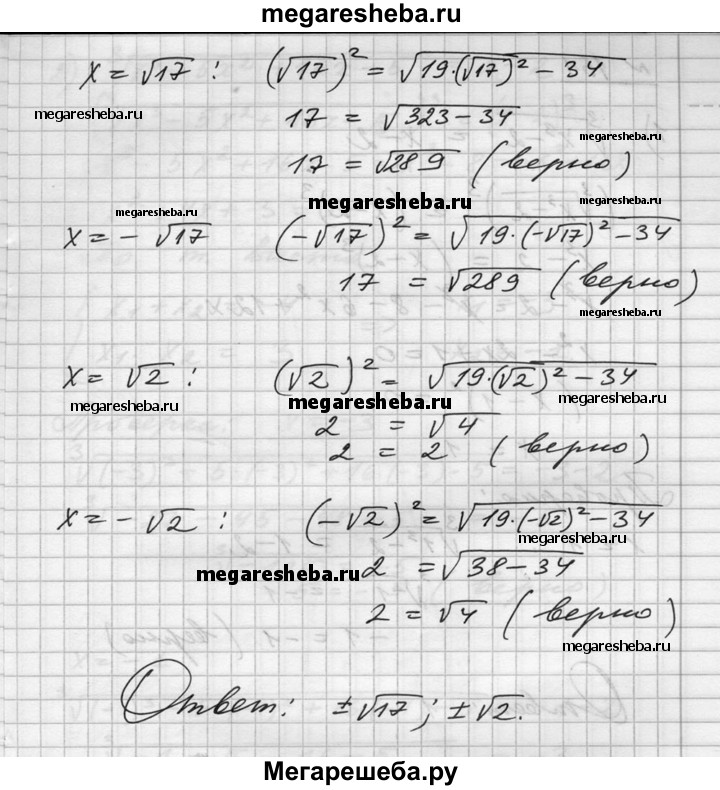 megaresheba.ru
x = √17 : (√17)² = √(19·(√17)² − 34)
megaresheba.ru
17 = √(323 − 34)
megaresheba.ru
17 = √289 (верно)
megaresheba.ru
megaresheba.ru
megaresheba.ru
x = − √17 (−√17)² = √(19·(−√17)² − 34)
17 = √289 (верно)
megaresheba.ru
x = √2 : (√2)² = √(19·(√2)² − 34)
megaresheba.ru
megaresheba.ru
megaresheba.ru
2 = √4
2 = 2 (верно)
x = − √2 : (−√2)² = √(19·(−√2)² − 34)
megaresheba.ru
2 = √(38 − 34)
megaresheba.ru
2 = √4 (верно)
megaresheba.ru
Ответ: ±√17; ±√2.
Мегарешеба.ру